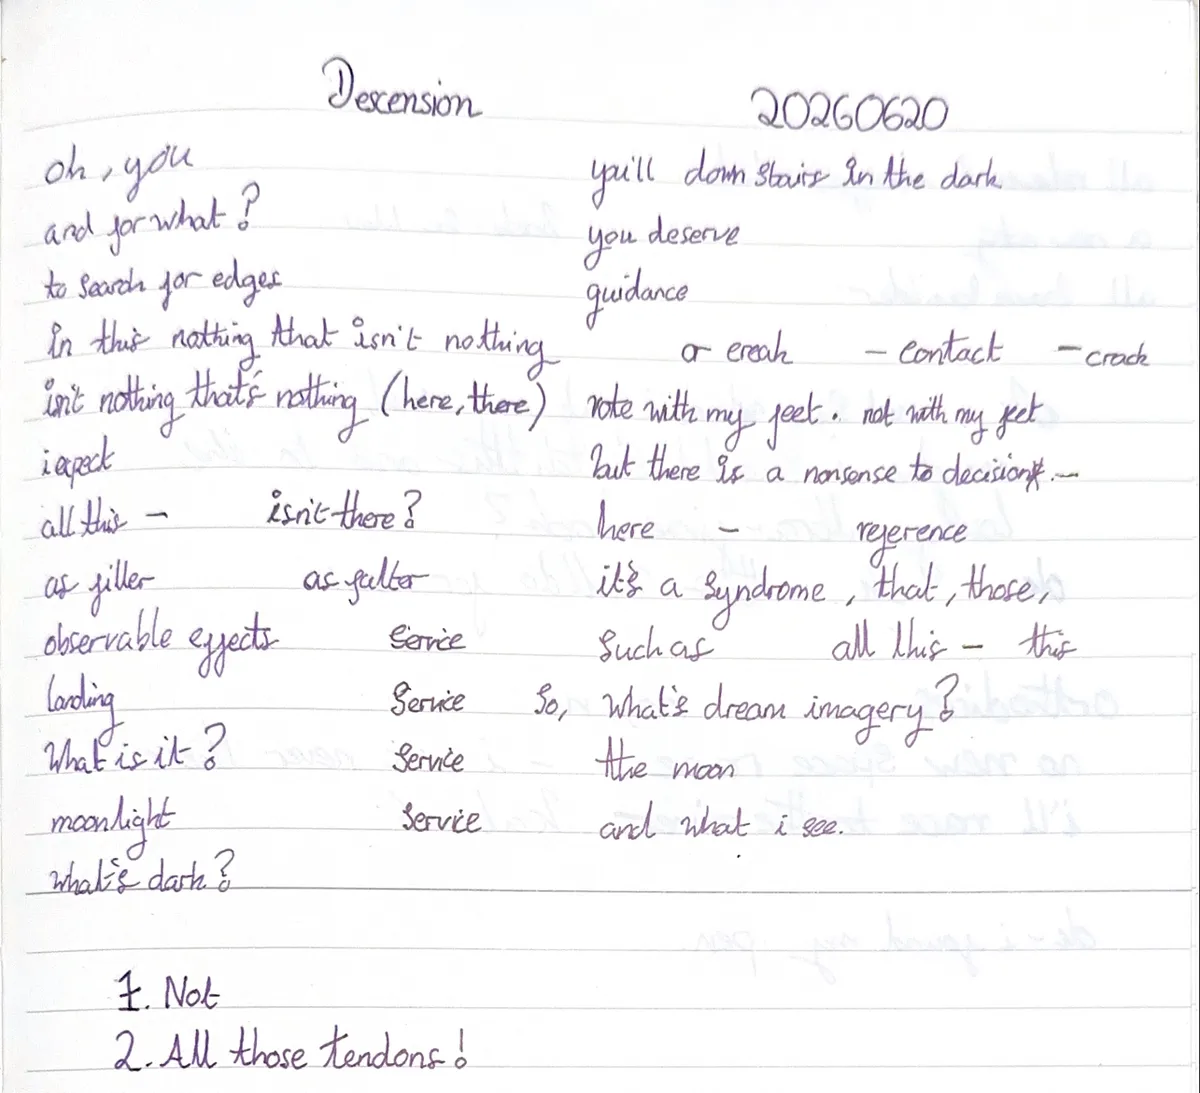 Descension 20260620
oh, you you'll down stairs in the dark
and for what? you deserve
to search for edges guidance
in this nothing that isn't nothing or creak - contact - crack
isn't nothing that's nothing (here, there) vote with my feet. not with my feet
i expect but there is a nonsense to decision. -
all this - isn't there? here - reference
as filler as falter it's a syndrome, that, those,
observable effects Service such as all this - this
landing Service So, what's dream imagery?
What is it? Service the moon
moonlight Service and what i see.
what's dark?
1. Not
2. All those tendons!